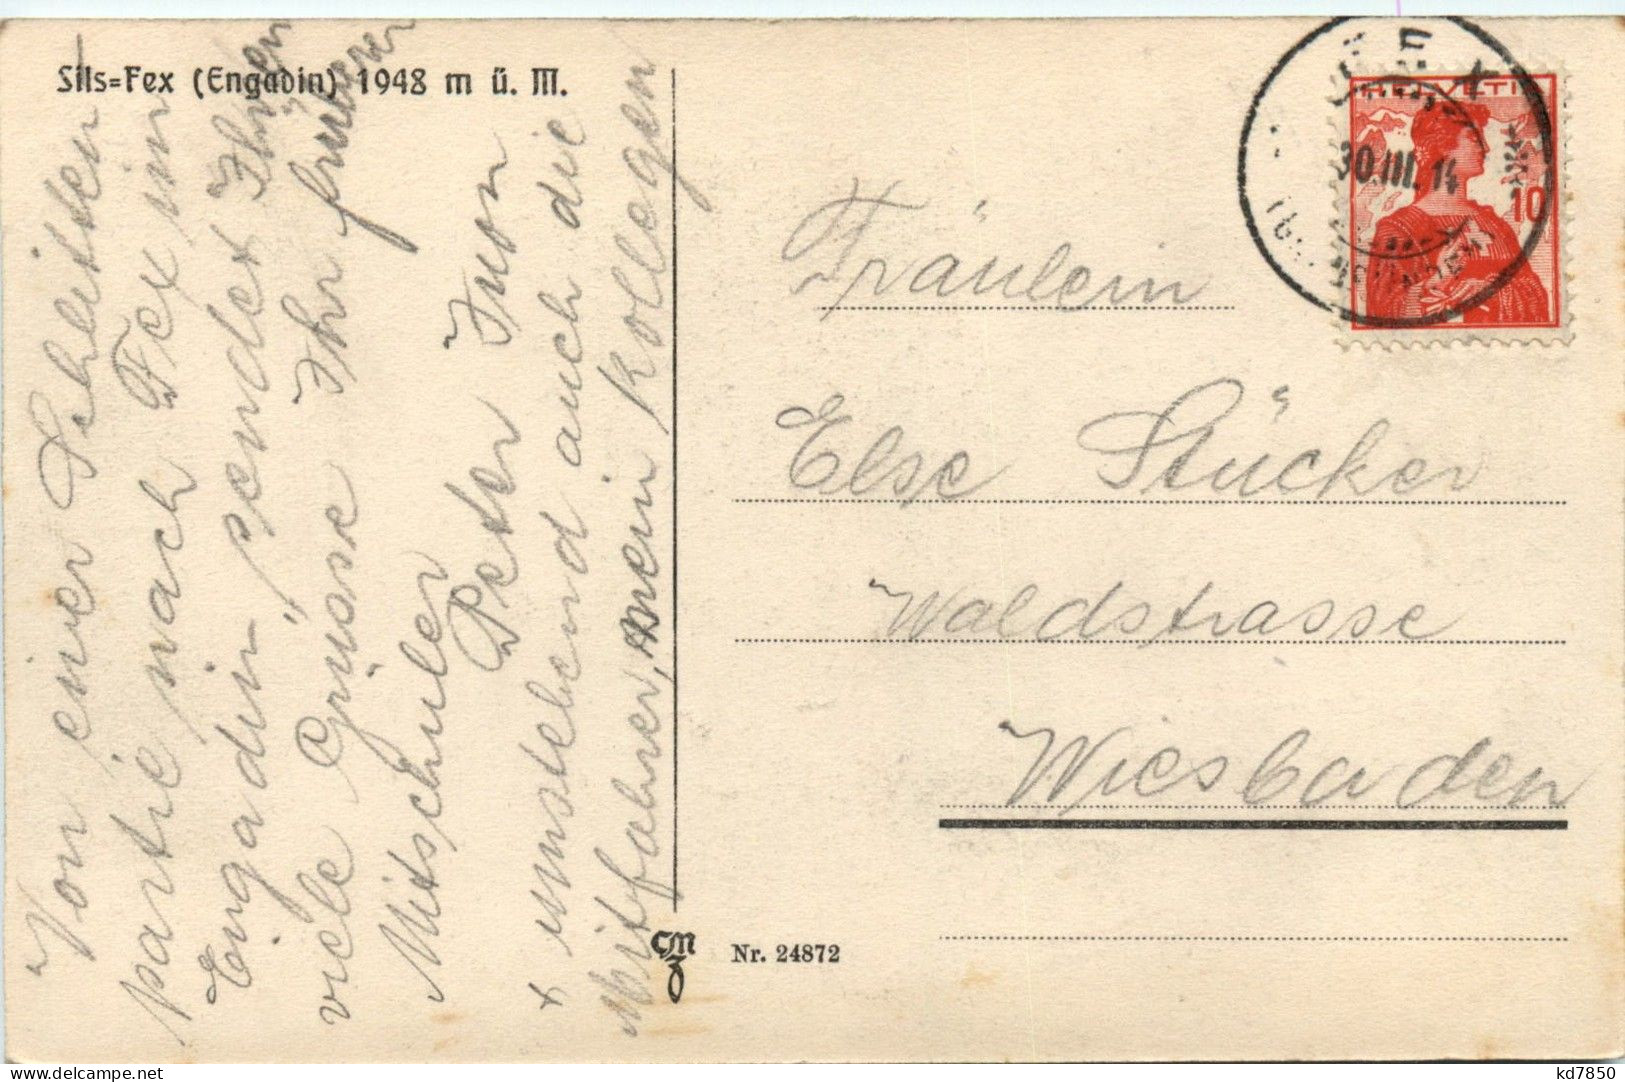 Sils=Fex (Engadin) 1948 m ü. M.
Von einer Schlitten
partie nach Fex im
Engadin sendet Ihnen
viele Grüsse Ihr früherer
Mitschüler
Peter Juon
+ umstehend auch die
Mitfahrer, mein Kollegen
HELVETIA
10
30.III.14
Fräulein
Else Stücker
Waldstrasse
Wiesbaden
CMZ
Nr. 24872
delcampe.net
kd7850